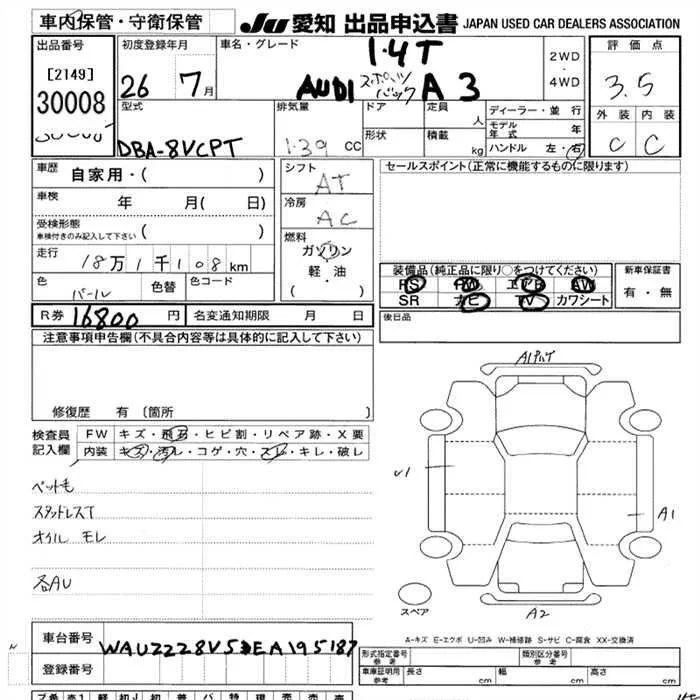 車内保管・守衛保管
JU 愛知 出品申込書 JAPAN USED CAR DEALERS ASSOCIATION
出品番号
[2149]
30008
初度登録年月
26 7月
車名・グレード
1.4T
AUDI スポーツバック A3
2WD
・
4WD
評価点
3.5
外装 内装
C C
型式
DBA-8VCPT
排気量
1.39 CC
ドア
形状
定員
人
積載
kg
ディーラー・並行
モデル年式 年
ハンドル 左・右
車歴
自家用・( )
車検
年 月( 日)
受検形態
車検付きのみ記入して下さい ( )
走行
18万1千108km
色
パール
色替
色コード
シフト
AT
冷房
AC
燃料
ガソリン
軽・油
( ・ )
セールスポイント(正常に機能するものに限ります)
装備品(純正品に限り○をつけてください)
PS PW エアB AW
SR ナビ TV カワシート
新車保証書
有・無
後日品
R券 16800 円
名変通知期限 月 日
注意事項申告欄(不具合内容等は具体的に記入して下さい)
修復歴 有(箇所 )
検査員
記入欄
FW キズ・飛石・ヒビ割・リペア跡・X要
内装 キズ・汚レ・コゲ・穴・スレ・キレ・破レ
ペットモ
スタッドレスT
オイルモレ
各AU
U1
A1
A2
スペア
A-キズ E-エクボ U-凹み W-補修跡 S-サビ C-腐食 XX-交換済
車台番号
登録番号
形式指定番号
参考
類別区分番号
参考
車庫証明用
参考
長さ cm
幅 cm
高さ cm